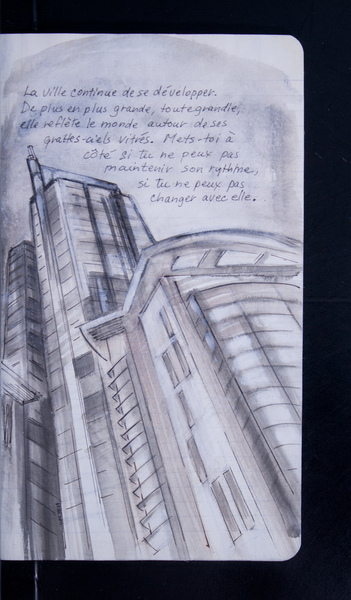 La ville continue de se développer.
De plus en plus grande, toute grandie,
elle reflète le monde autour de ses
grattes-ciels vitrés. Mets-toi à
côté si tu ne peux pas
maintenir son rythme,
si tu ne peux pas
changer avec elle.